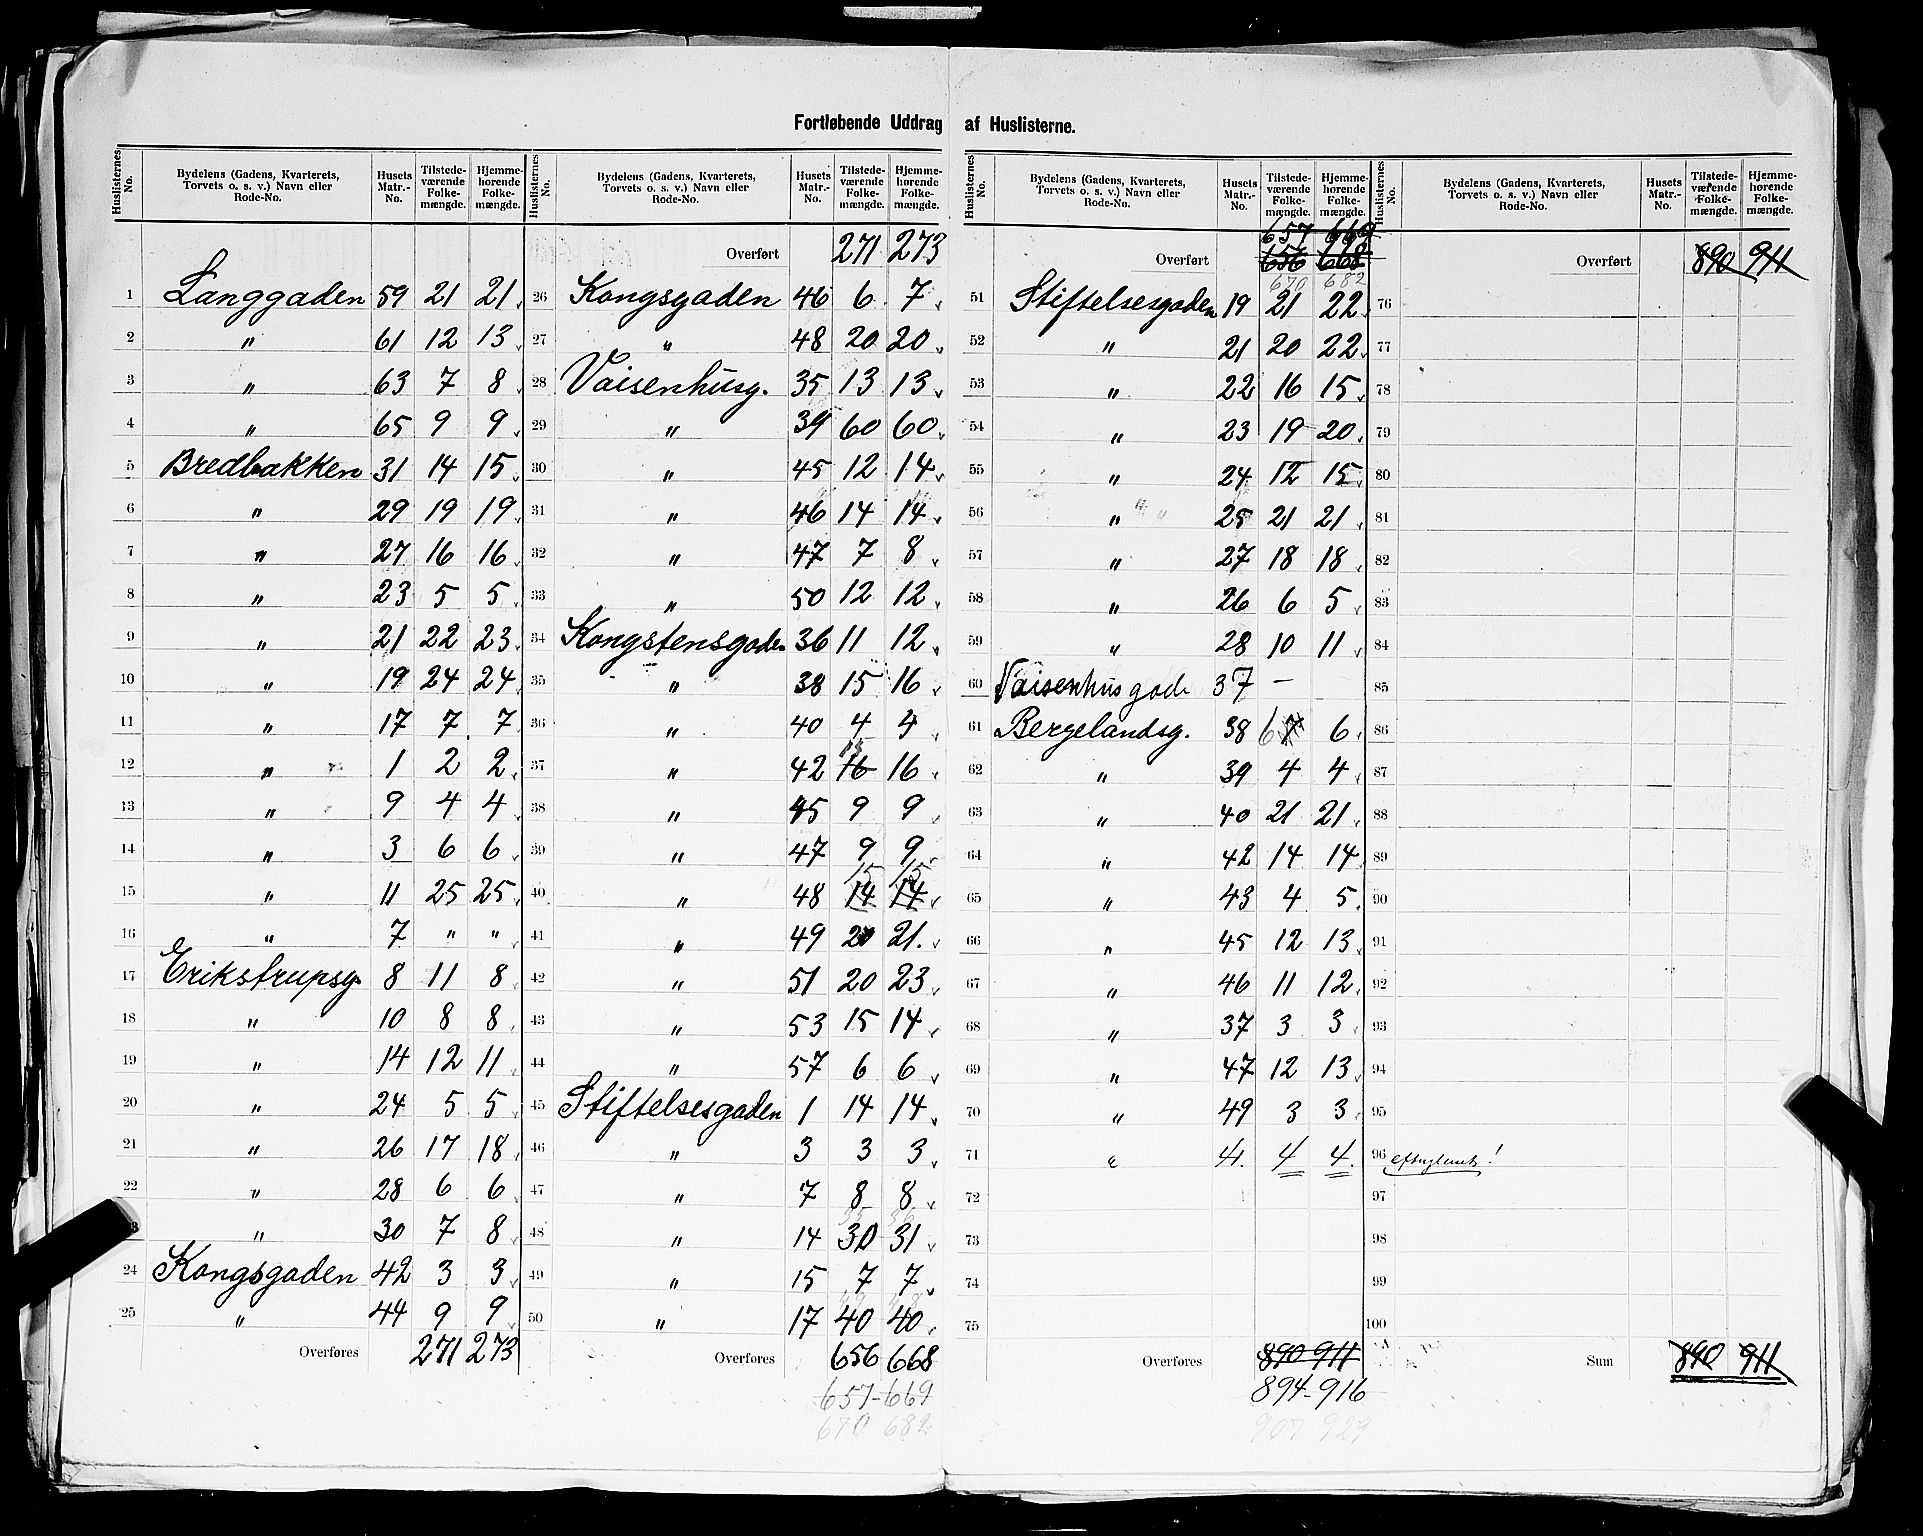 Fortløbende Uddrag af Huslisterne.
Huslisternes No. | Bydelens (Gadens, Kvarterets, Torvets o. s. v.) Navn eller Rode-No. | Husets Matr.-No. | Tilstedeværende Folkemængde. | Hjemmehørende Folkemængde.
1 Langgaden 59 21 21
2 " 61 12 13
3 " 63 7 8
4 " 65 9 9
5 Bredbakken 31 14 15
6 " 29 19 19
7 " 27 16 16
8 " 23 5 5
9 " 21 22 23
10 " 19 24 24
11 " 17 7 7
12 " 1 2 2
13 " 9 4 4
14 " 3 6 6
15 " 11 25 25
16 " 7 " "
17 Erikstrupsg. 8 11 8
18 " 10 8 8
19 " 14 12 11
20 " 24 5 5
21 " 26 17 18
22 " 28 6 6
3 " 30 7 8
24 Kongsgaden 42 3 3
25 " 44 9 9
Overføres 271 273
Huslisternes No. | Bydelens (Gadens, Kvarterets, Torvets o. s. v.) Navn eller Rode-No. | Husets Matr.-No. | Tilstedeværende Folkemængde. | Hjemmehørende Folkemængde.
Overført 271 273
26 Kongsgaden 46 6 7
27 " 48 20 20
28 Vaisenhusg. 35 13 13
29 " 39 60 60
30 " 45 12 14
31 " 46 14 14
32 " 47 7 8
33 " 50 12 12
34 Kongstensgaden 36 11 12
35 " 38 15 16
36 " 40 4 4
37 " 42 16 16
38 " 45 9 9
39 " 47 9 9
15 15
40 " 48 14 14
41 " 49 20 21.
42 " 51 20 23
43 " 53 15 14
44 " 57 6 6
45 Stiftelsesgaden 1 14 14
46 " 3 3 3
47 " 7 8 8
48 " 14 30 31
49 " 15 7 7
50 " 17 40 40
Overføres 656 668
657-669
670 682
Huslisternes No. | Bydelens (Gadens, Kvarterets, Torvets o. s. v.) Navn eller Rode-No. | Husets Matr.-No. | Tilstedeværende Folkemængde. | Hjemmehørende Folkemængde.
657 669
Overført 656 668
670 682
51 Stiftelsesgaden 19 21 22
52 " 21 20 22
53 " 22 16 15
54 " 23 19 20
55 " 24 12 15
56 " 25 21 21
57 " 27 18 18
58 " 26 6 5
59 " 28 10 11
60 Vaisenhusgade 37 –
61 Bergelandsg. 38 6 7 6
62 " 39 4 4
63 " 40 21 21
64 " 42 14 14
65 " 43 4 5
66 " 45 12 13
67 " 46 11 12
68 " 37 3 3
69 " 47 12 13
70 " 49 3 3
71 " 4. 4 4.
72
73
74
75
Overføres 890 911
894-916
907 929
Huslisternes No. | Bydelens (Gadens, Kvarterets, Torvets o. s. v.) Navn eller Rode-No. | Husets Matr.-No. | Tilstedeværende Folkemængde. | Hjemmehørende Folkemængde.
Overført 890 911
76
77
78
79
80
81
82
83
84
85
86
87
88
89
90
91
92
93
94
95
96
97
98
99
100
Sum 890 911